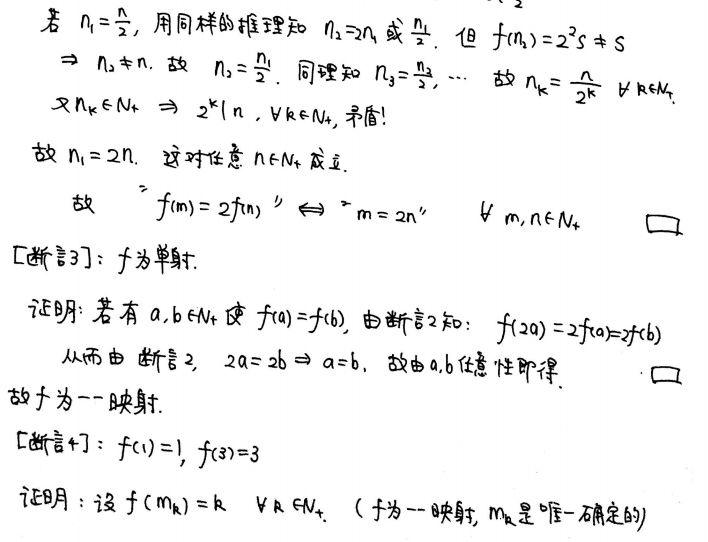 若 n₁=n/2, 用同样的推理知 n₂=2n₁ 或 n₁/2. 但 f(n₂)=2²s≠s
⇒ n₂≠n. 故 n₂=n₁/2. 同理知 n₃=n₂/2, … 故 n_k=n/2^k ∀k∈N₊.
又 n_k∈N₊ ⇒ 2^k|n, ∀k∈N₊, 矛盾!
故 n₁=2n. 这对任意 n∈N₊ 成立.
故 "f(m)=2f(n)" ⇔ "m=2n" ∀ m,n∈N₊ □
[断言3]: f为单射.
证明: 若有 a,b∈N₊ 使 f(a)=f(b), 由断言2知: f(2a)=2f(a)=2f(b)
从而由 断言2, 2a=2b ⇒ a=b. 故由a,b任意性即得. □
故f为一一映射.
[断言4]: f(1)=1, f(3)=3
证明: 设 f(m_k)=k ∀k∈N₊. (f为一一映射, m_k是唯一确定的)